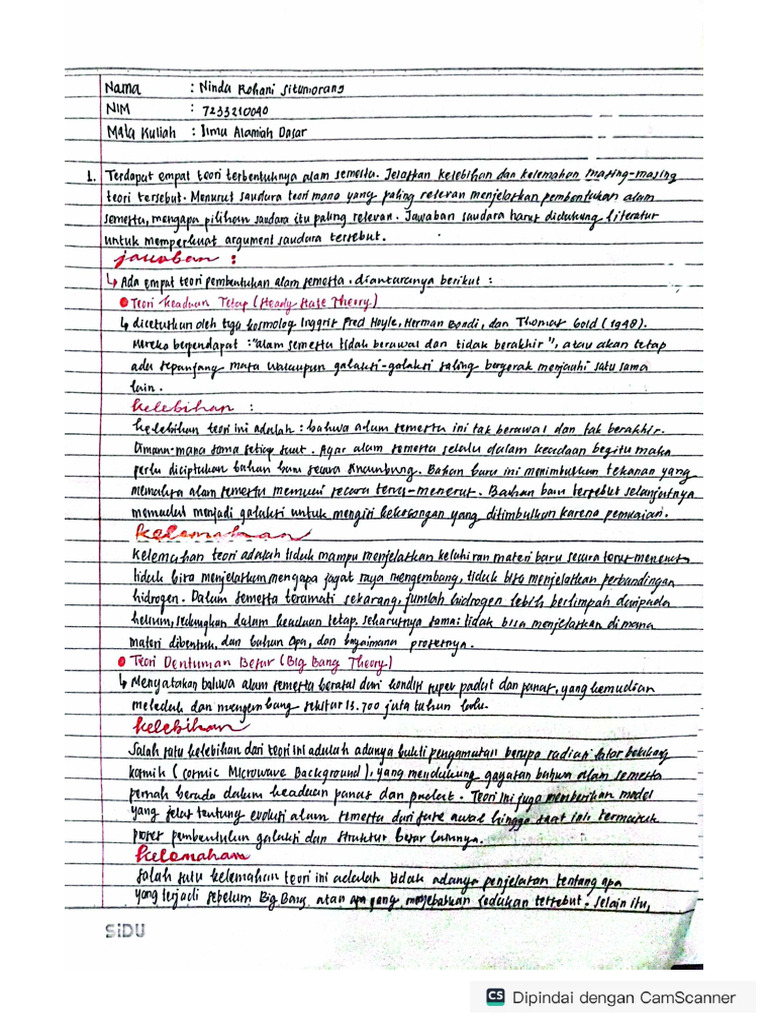 Nama : Ninda Rohani Situmorang
NIM : 7233210040
Mata Kuliah : Ilmu Alamiah Dasar
1. Terdapat empat teori terbentuknya alam semesta. Jelaskan kelebihan dan kelemahan masing-masing
teori tersebut. Menurut saudara teori mana yang paling relevan menjelaskan pembentukan alam
semesta, mengapa pilihan saudara itu paling relevan. Jawaban saudara harus didukung literatur
untuk memperkuat argument saudara tersebut.
jawaban :
↳ Ada empat teori pembentukan alam semesta. diantaranya berikut :
• Teori Keadaan Tetap (Steady State Theory)
↳ dicetuskan oleh tiga kosmolog Inggris Fred Hoyle, Herman Bondi, dan Thomas Gold (1948).
Mereka berpendapat : "alam semesta tidak berawal dan tidak berakhir", atau akan tetap
ada sepanjang masa walaupun galaksi-galaksi saling bergerak menjauhi satu sama
lain.
kelebihan :
kelebihan teori ini adalah : bahwa alam semesta ini tak berawal dan tak berakhir.
Dimana-mana sama setiap saat. Agar alam semesta selalu dalam keadaan begitu maka
perlu diciptakan bahan baru secara Bahan baru ini menimbulkan tekanan yang
memaksa alam semesta memuai secara terus-menerus. Bahan baru tersebut selanjutnya
memadat menjadi galaksi untuk mengisi kekosongan yang ditimbulkan karena pemuaian.
kelemahan
kelemahan teori adalah tidak mampu menjelaskan kelahiran materi baru secara terus menerus
tidak bisa menjelaskan mengapa jagat raya mengembang, tidak bisa menjelaskan perbandingan
hidrogen. Dalam semesta teramati sekarang, jumlah hidrogen lebih berlimpah daripada
helium, sedangkan dalam keadaan tetap. seharusnya sama; tidak bisa menjelaskan dimana
materi dibentuk, dan bahan apa, dan bagaimana prosesnya.
• Teori Dentuman Besar (Big Bang Theory)
↳ Menyatakan bahwa alam semesta berasal dari kondisi super padat dan panas, yang kemudian
meledak dan mengembang sekitar 13.700 juta tahun lalu.
kelebihan
Salah satu kelebihan dari teori ini adalah adanya bukti pengamatan berupa radiasi latar belakang
kosmik (cosmic Microwave Background), yang mendukung gagasan bahwa alam semesta
pernah berada dalam keadaan panas dan padat. Teori ini juga memberikan model
yang jelas tentang evolusi alam semesta dari fase awal hingga saat ini, termasuk
proses pembentukan galaksi dan struktur besar lainnya.
kelemahan
Salah satu kelemahan teori ini adalah tidak adanya penjelasan tentang apa
yang terjadi sebelum Big Bang, atau apa yang menyebabkan ledakan tersebut. Selain itu,
SiDU
CS Dipindai dengan CamScanner